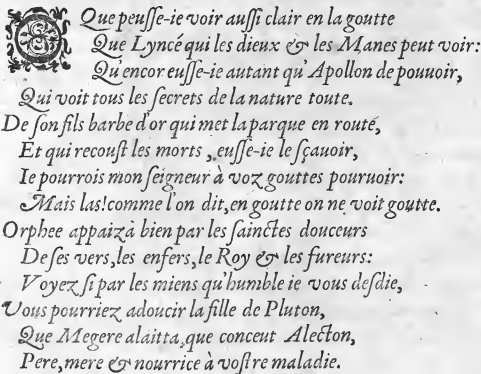 O Que peuſſe-ie voir auſſi clair en la goutte
Que Lyncé qui les dieux & les Manes peut voir:
Qu'encor euſſe-ie autant qu'Apollon de pouuoir,
Qui voit tous les ſecrets de la nature toute.
De ſon fils barbe d'or qui met la parque en routé,
Et qui recouſt les morts, euſſe-ie le ſçauoir,
Ie pourrois mon ſeigneur à voz gouttes pouruoir:
Mais las! comme l'on dit, en goutte on ne voit goutte.
Orphee appaiza bien par les ſainctes douceurs
De ſes vers, les enfers, le Roy & les fureurs:
Voyez ſi par les miens qu'humble ie vous deſdie,
Vous pourriez adoucir la fille de Pluton,
Que Megere alaitta, que conceut Alecton,
Pere, mere & nourrice à voſtre maladie.